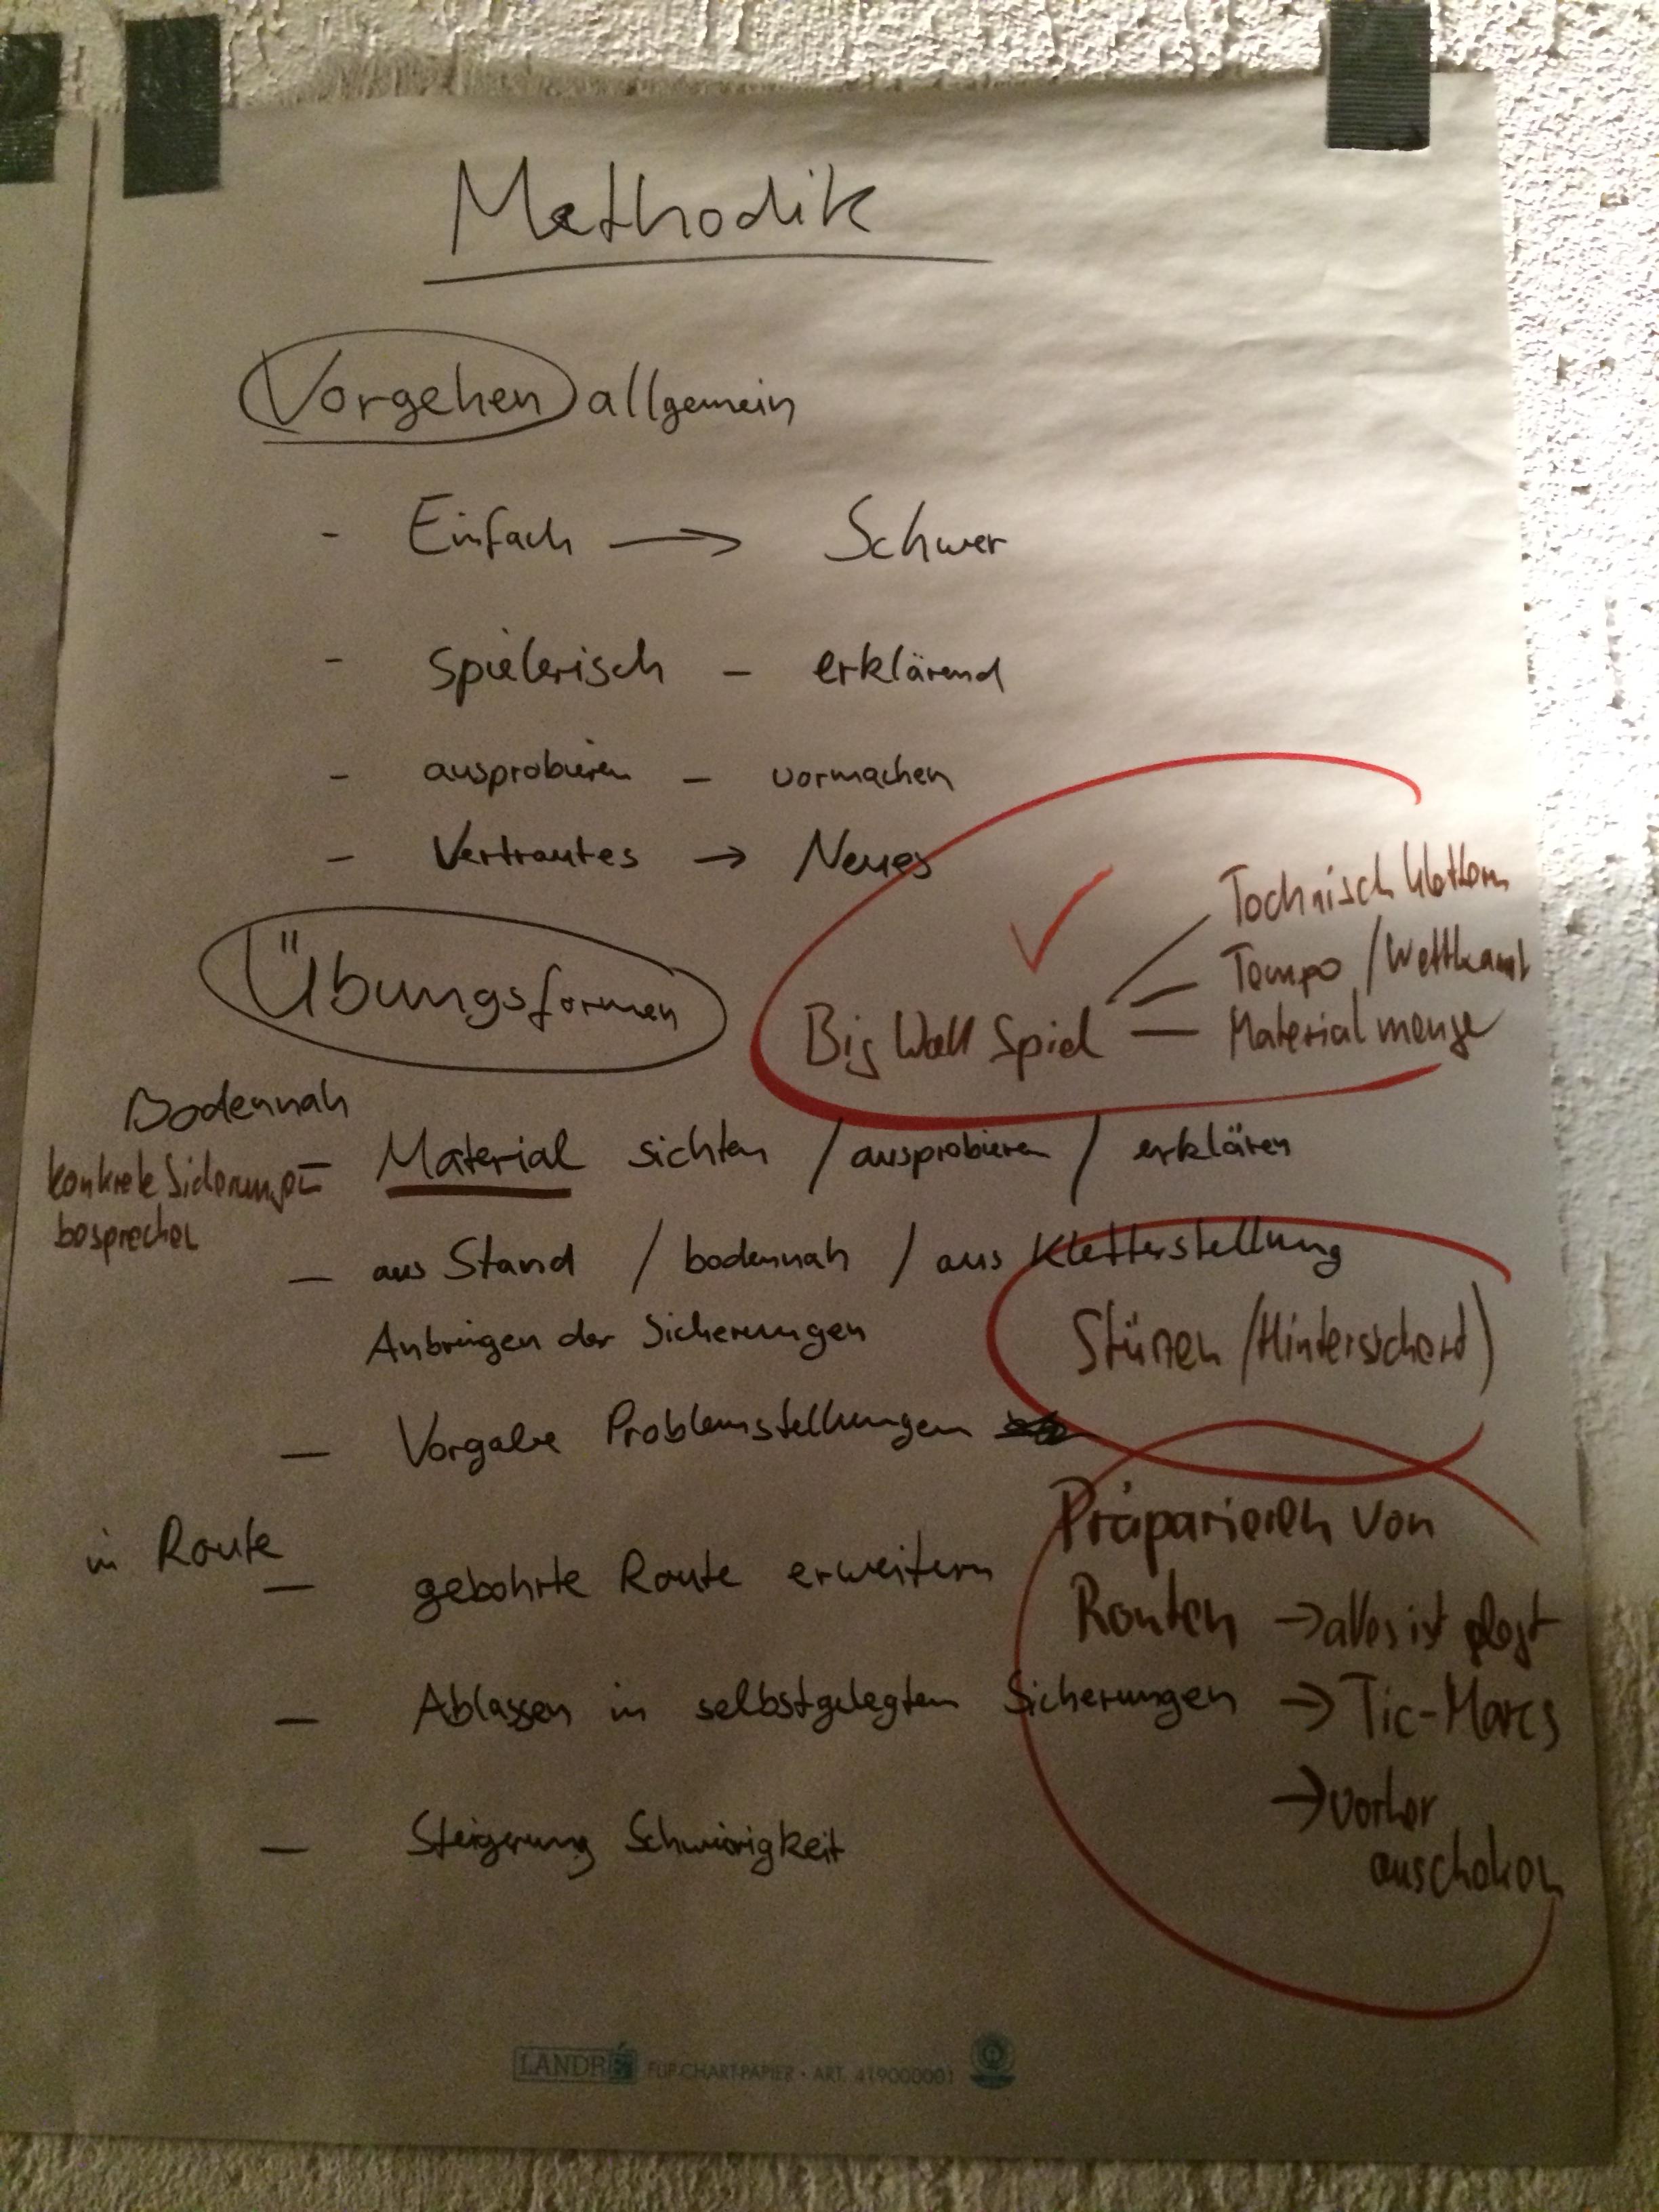 Methodik
Vorgehen allgemein
- Einfach → Schwer
- spielerisch - erklärend
- ausprobieren - vormachen
- Vertrautes → Neues
Übungsformen
Big Wall Spiel
Technisch klettern
Tempo / Wettkamf
Material menge
Bodennah
konkrete Sicherungen
besprechen
- Material sichten / ausprobieren / erklären
- aus Stand / bodennah / aus Kletterstellung
Anbringen der Sicherungen
Stürzen (Hintersichert)
- Vorgabe Problemstellungen
in Route
- gebohrte Route erweitern
Präparieren von
Routen → alles ist gelegt
- Ablassen in selbstgelegten Sicherungen
→ Tic-Marcs
→ vorher
auschecken
- Steigerung Schwierigkeit
LANDRÉ FLIP-CHART-PAPIER · ART. 419000001